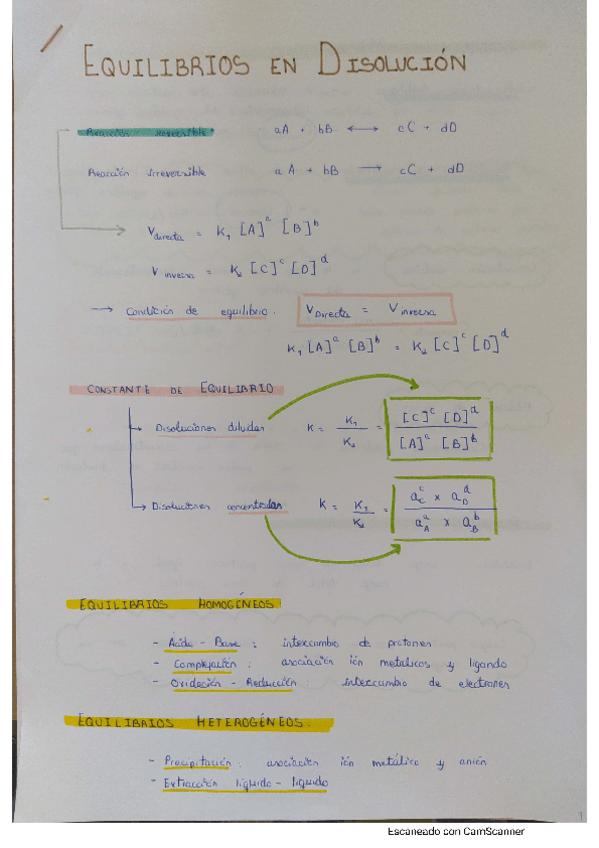 EQUILIBRIOS EN DISOLUCIÓN
Reacción reversible: aA + bB ⟷ cC + dD
Reacción irreversible aA + bB → cC + dD
V directa = K₁ [A]ᵃ [B]ᵇ
V inversa = K₂ [C]ᶜ [D]ᵈ
→ Condición de equilibrio. V Directa = V inversa
K₁ [A]ᵃ [B]ᵇ = K₂ [C]ᶜ [D]ᵈ
CONSTANTE DE EQUILIBRIO
Disoluciones diluidas K = K₁/K₂ = [C]ᶜ [D]ᵈ / [A]ᵃ [B]ᵇ
Disoluciones concentradas K = K₁/K₂ = a_C^c x a_D^d / a_A^a x a_B^b
EQUILIBRIOS HOMOGÉNEOS
- Ácido - Base: intercambio de protones
- Complejación: asociación ión metalicos y ligando
- Oxidación - Reducción: intercambio de electrones
EQUILIBRIOS HETEROGÉNEOS.
- Precipitación: asociación ión metálico y anión
- Extracción líquido - líquido
1
Escaneado con CamScanner